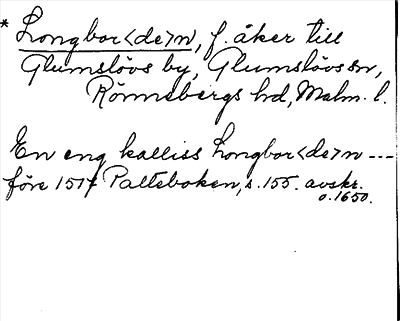 * Longbor<de>n, f. åker till
Glumslövs by, Glumslövs sn,
Rönnebergs hd, Malm. l.
En eng kalliss Longbor<de>n ---
före 1517 Palteboken, s. 155. avskr.
o. 1650.